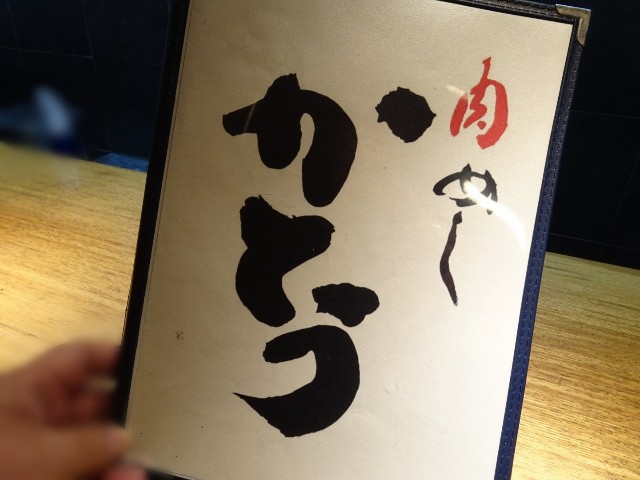 肉めし
かとう